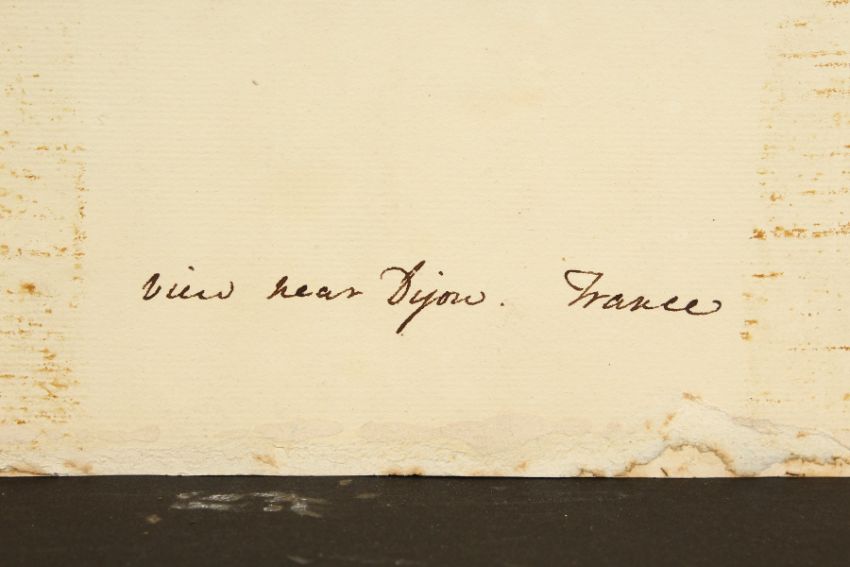 view near Dijon. France